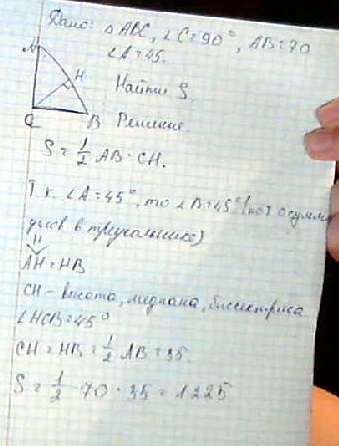 Дано: △ABC, ∠C=90°, AB=70
∠A=45.
Найти S.
A
H
C
B
Решение.
S = 1/2 AB · CH.
Т.к. ∠A=45°, то ∠B=45° (по т. о сумме
углов в треугольнике)
⇓
AH=HB
CH - высота, медиана, биссектриса
∠HCB=45°
CH = HB = 1/2 AB = 35.
S = 1/2 · 70 · 35 = 1225